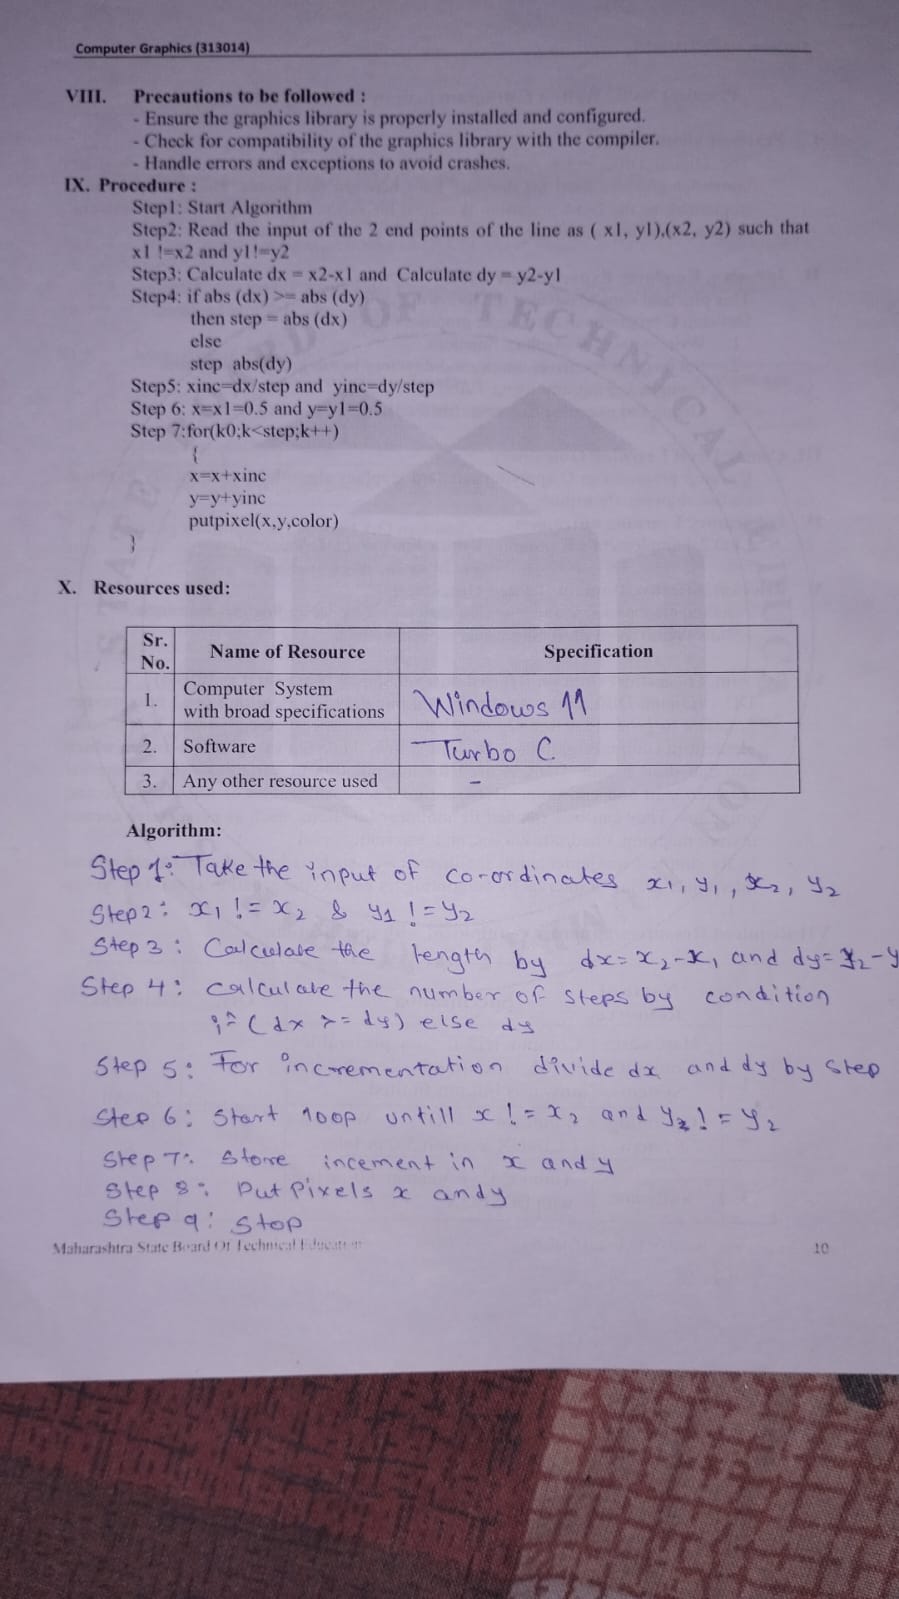 Computer Graphics (313014)
VIII. Precautions to be followed :
- Ensure the graphics library is properly installed and configured.
- Check for compatibility of the graphics library with the compiler.
- Handle errors and exceptions to avoid crashes.
IX. Procedure :
Step1: Start Algorithm
Step2: Read the input of the 2 end points of the line as ( x1, y1),(x2, y2) such that
x1 !=x2 and y1!=y2
Step3: Calculate dx = x2-x1 and Calculate dy = y2-y1
Step4: if abs (dx) >= abs (dy)
then step = abs (dx)
else
step abs(dy)
Step5: xinc=dx/step and yinc=dy/step
Step 6: x=x1=0.5 and y=y1=0.5
Step 7:for(k0;k<step;k++)
{
x=x+xinc
y=y+yinc
putpixel(x,y,color)
}
X. Resources used:
Sr. No. Name of Resource Specification
1. Computer System with broad specifications Windows 11
2. Software Turbo C
3. Any other resource used -
Algorithm:
Step 1: Take the input of co-ordinates x1, y1, x2, y2
Step 2: x1 != x2 & y1 != y2
Step 3: Calculate the length by dx = x2-x1 and dy = y2-y
Step 4: calculate the number of steps by condition
if (dx >= dy) else dy
Step 5: For incrementation divide dx and dy by step
Step 6: Start loop untill x != x2 and y2 != y2
Step 7: Store incement in x and y
Step 8: Put Pixels x and y
Step 9: Stop
Maharashtra State Board Of Technical Education 10